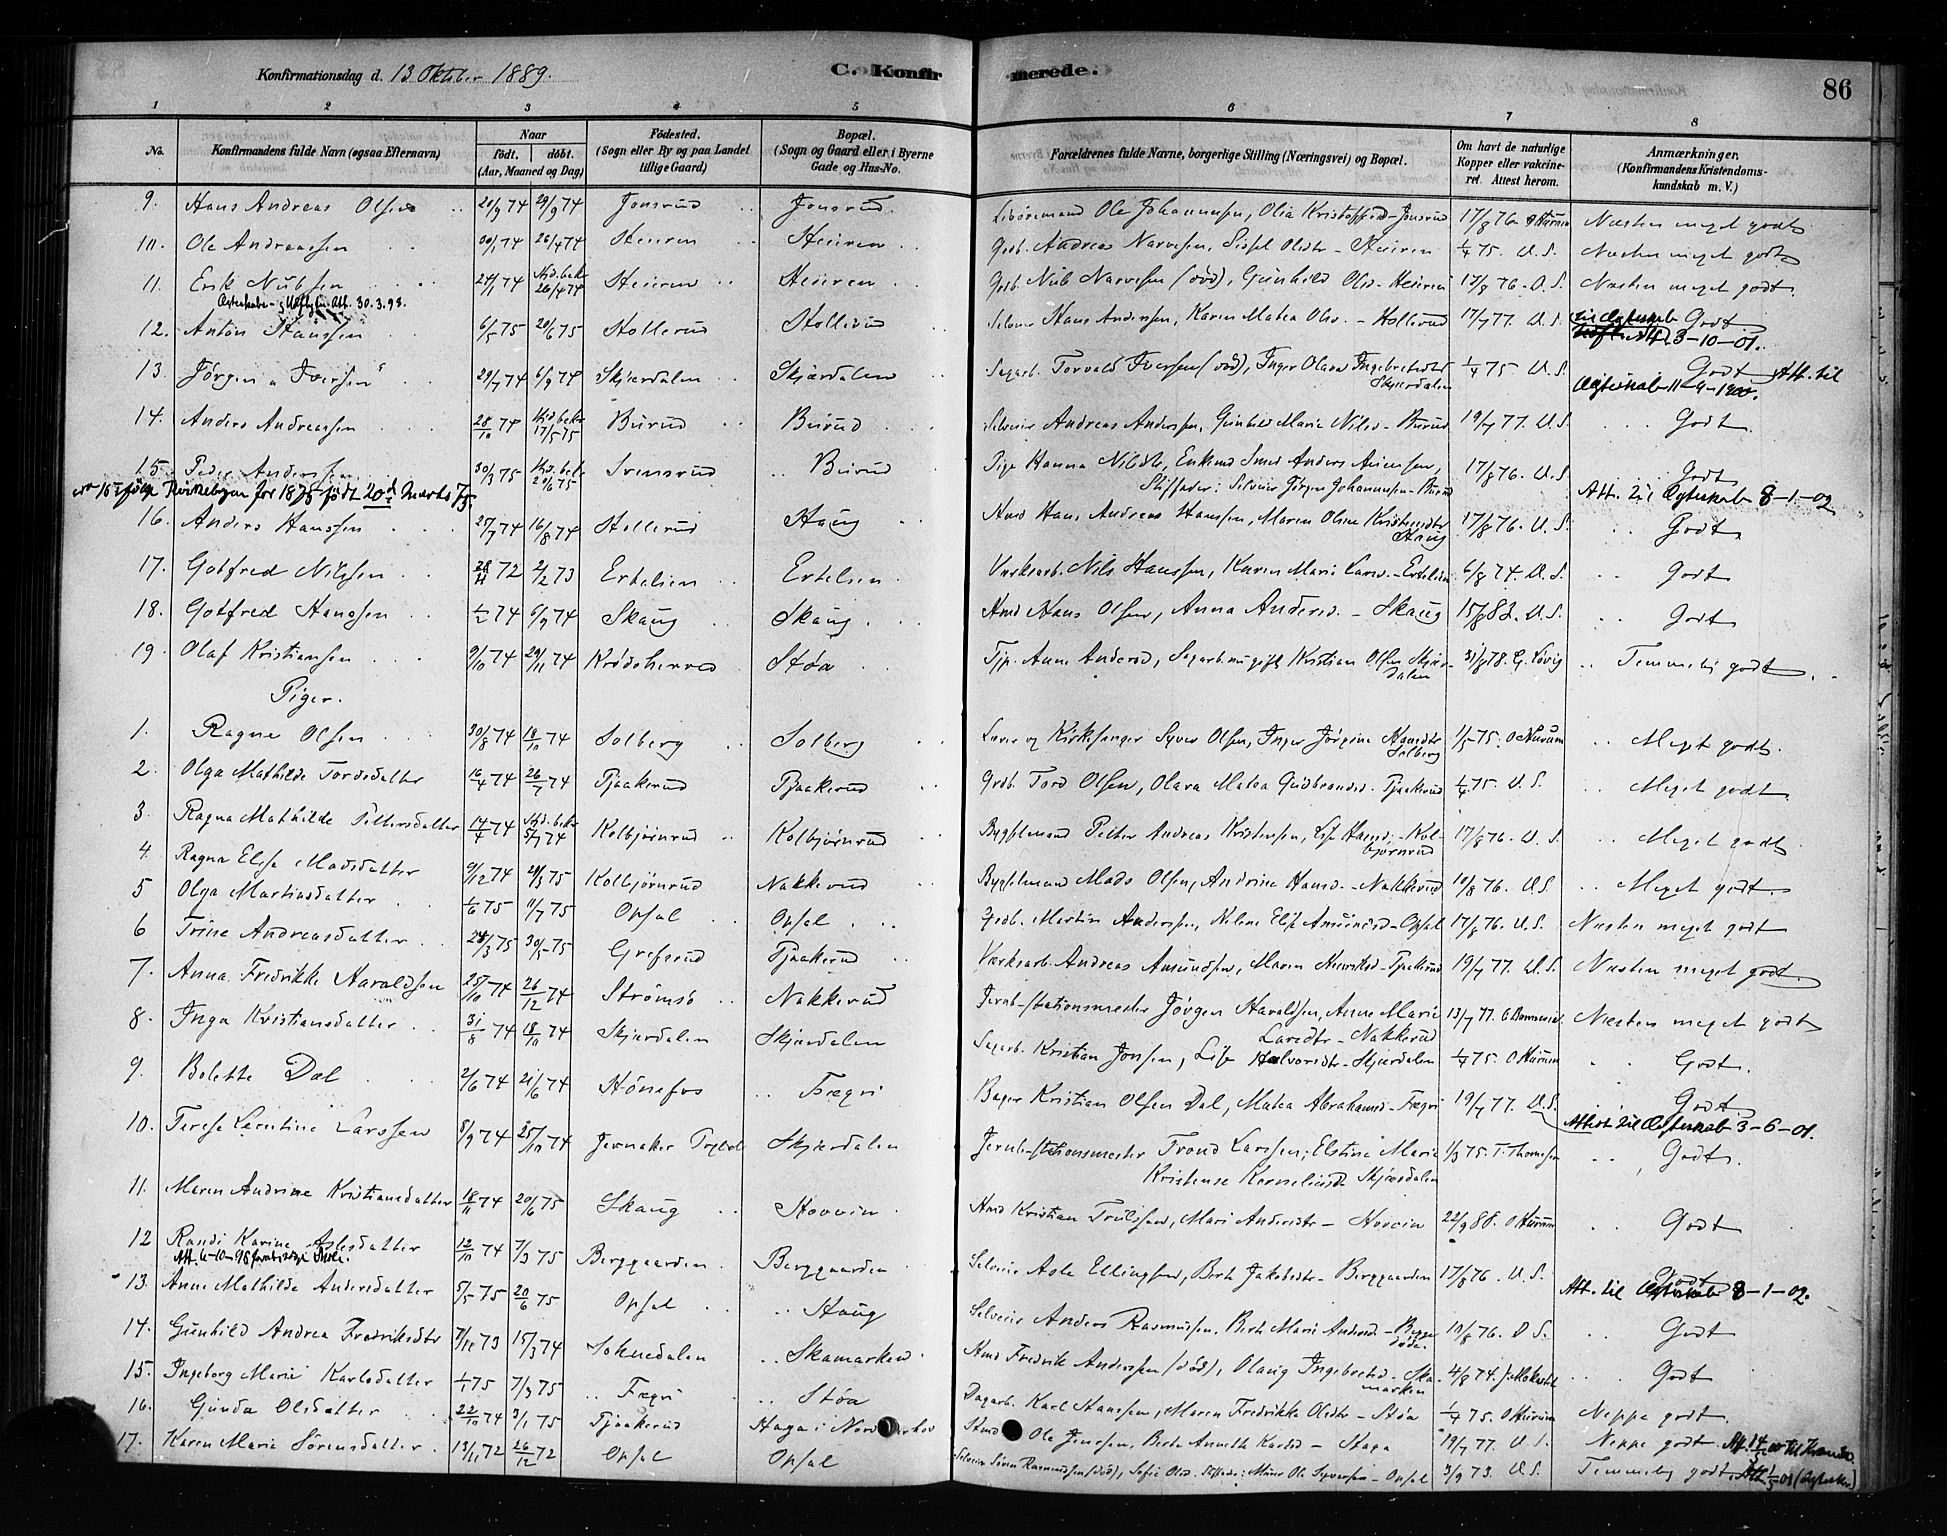 Konfirmationsdag d. 13 Oktober 1889.
C. Konfirmerede.
86
1 2 3 4 5 6 7 8
No.
Konfirmandens fulde Navn (ogsaa Efternavn)
Naar
født. døbt.
(Aar, Maaned og Dag)
Fødested.
(Sogn eller By og paa Landet
tillige Gaard)
Bopæl.
(Sogn og Gaard eller i Byerne
Gade og Hus-No.
Forældrenes fulde Navne, borgerlige Stilling (Næringsvei) og Bopæl.
Om havt de naturlige
Kopper eller vakcine-
ret. Attest herom.
Anmærkninger.
(Konfirmandens Kristendoms-
kundskab m. V.)
9. Hans Andreas Olsen 29/9 74 Jonsrud Jonsrud Ole Johannesen, Olia Kristoffersd - Jonsrud 17/8 76 Næsten meget godt
10. Ole Andreassen 26/4 74 Heieren Heieren Grdb. Andreas Narvesen, Sissel Olsdtr - Heieren 1/4 75. U.S. Næsten meget godt
11. Erik Nubsen 26/4 74 Heieren Heieren Grdb. Nub Narvesen (død), Gunhild Olsd - Heieren 17/8 76. U.S. Næsten meget godt.
30.3.98.
12. Anton Hanssen 6/5 75 20/6 75 Hollerud Hollerud Selveier Hans Anderssen, Karen Matea Olsd. - Hollerud 17/7 77. U.S. Godt
til Ægteskab 3-10-01.
13. Jörgen Iversen 29/7 74 6/9 74 Skjærdalen Skjærdalen Sagarb. Torvald Iversen (død), Inger Olava Ingebretsdtr Skjærdalen 1/4 75 U.S. Godt Att. til
Ægteskab 11-4-1900.
14. Anders Andreassen 28/10 74 17/5 75 Burud Burud Selveier Andreas Anderssen, Gunhild Marie Nilsd - Burud 19/7 77. U.S. Godt.
15. Peder Anderssen 30/3 75 20/6 75 Svensrud Burud Pige Hanna Nilsdtr, Enkemd Smed Anders Amundsen,
Stiffader: Selveier Jörgen Johannesen - Burud 17/8 76. U.S. Godt
Kirkebogen for 1875 født 20d Marts 75.
Att. til Ægteskab 8-1-02
16. Anders Hanssen 25/7 74 16/8 74 Hollerud Haug Hmd Hans Andreas Hanssen, Maren Olsine Kristensdtr Haug 17/8 76. U.S. Godt
17. Gotfred Nilssen 28/11 72 2/2 73 Ertelien Ertelien Værksarb. Nils Hanssen, Karen Marie Larsd. - Ertelien 6/8 74. U.S. Godt
18. Gotfred Hanssen 1/2 74 6/9 74 Skaug Skaug Hmd Hans Olsen, Anna Andersd. - Skaug 15/8 82. U.S. Godt
19. Olaf Kristiansen 9/10 74 29/11 74 Krødsherred Støa Tjp. Anne Andersd, Sagarb. nu gift Kristian Olsen Skjærdalen 31/8 78. G. Lövig Temmelig godt
Piger.
1. Ragna Olsen 30/8 74 18/10 74 Solberg Solberg Lærer og Kirkesanger Syver Olsen, Inger Jörgine Hansdtr Solberg 75. Meget godt.
2. Olga Mathilde Tordsdatter 16/4 74 26/7 74 Tjaakerud Tjaakerud Grdb. Tord Olsen, Olava Matea Gudbrandsd. Tjaakerud 1/4 75. U.S. Meget godt
3. Ragna Mathilde Pettersdatter 14/4 74 5/7 74 Kolbjørnrud Kolbjørnrud Bygselmand Petter Andreas Kristensen, Lise Hansd. - Kolbjørnrud 17/8 76. U.S. Meget godt
4. Ragna Elise Madsdatter 9/12 74 28/3 75 Kolbjørnrud Nakkerud Bygselmand Mads Olsen, Andrine Hansd. - Nakkerud 10/8 76. U.S. Meget godt.
5 Olga Martinsdatter 1/6 75 11/7 75 Opsal Opsal Grdb. Martin Anderssen, Nilene Elise Amundsd - Opsal 17/8 76. U.S. Næsten meget godt
6 Trine Andreasdatter 28/3 75 30/5 75 Grefsrud Tjaakerud Værksarb. Andreas Amundsen, Maren Henriksd - Tjaakerud 19/7 77. U.S. Næsten meget godt.
7. Anna Fredrikke Haraldsen 25/10 74 26/12 74 Strømsø Nakkerud Jernb-stationsmester Jörgen Haraldsen, Anne Marie
Larsdtr - Nakkerud 13/7 77. Næsten meget godt
8. Inga Kristiansdatter 31/8 74 18/10 74 Skjærdalen Skjærdalen Sagarb. Kristian Jonsen, Lise Halvorsdtr - Skjærdalen 1/4 75. Godt.
9. Bolette Dal 2/6 74 21/6 74 Hönefos Fægri Bager Kristian Olsen Dal, Matea Abrahamsd - Fægri 19/7 77. U.S. Godt
Attest til Ægteskab 3-6-01.
10. Terese Leontine Larssen 8/9 74 25/10 74 Jevnaker Skjærdalen Jernb-stationsmester Trond Larssen, Elstina Marie
Kristense Korneliusd. Skjærdalen 1/3 75. T. Thomesen Godt.
11. Maren Andrine Kristiansdatter 18/11 74 20/6 75 Skaug Hovvin Hmd Kristian Trulssen, Mari Andersdtr - Hovvin 22/9 88. Godt
12 Randi Karine Aslesdatter 12/10 74 7/3 75 Berggaarden Berggaarden Selveier Asle Ellingsen, Berte Jakobsdtr - Berggaarden 17/8 76. U.S. Godt
Att. til Ægteskab 8-1-02.
13. Anne Mathilde Andersdatter 5/5 75 20/6 75 Opsal Haug Selveier Anders Rasmussen, Berte Marie Andersd - 10/8 76. U.S. Godt
14. Gunhild Andrea Fredriksdtr 7/12 73 15/3 74 Soknedalen Skamarken Hmd Fredrik Anderssen (død), Olaug Ingebretsd. Skamarken 4/8 74. Godt
15. Ingeborg Marie Karlsdatter 1/1 75 7/3 75 Fægri Støa Dagarb. Karl Hanssen, Maren Fredrikke Olsdtr - Støa 1/4 75. Neppe godt.
16. Gunda Olsdatter 22/11 74 3/1 75 Tjaakerud Haga i Norderhov Hmd Ole Jenssen, Berte Annette Karlsd - Haga 19/7 77. U.S. Neppe godt.
17. Karen Marie Sörensdatter. 13/11 72 26/12 72 Opsal Opsal Selveier Sören Rasmussen (død), Sofie Olsd. Stiffader: Ole Syversen - Opsal 3/9 73. U.S. Temmelig godt.